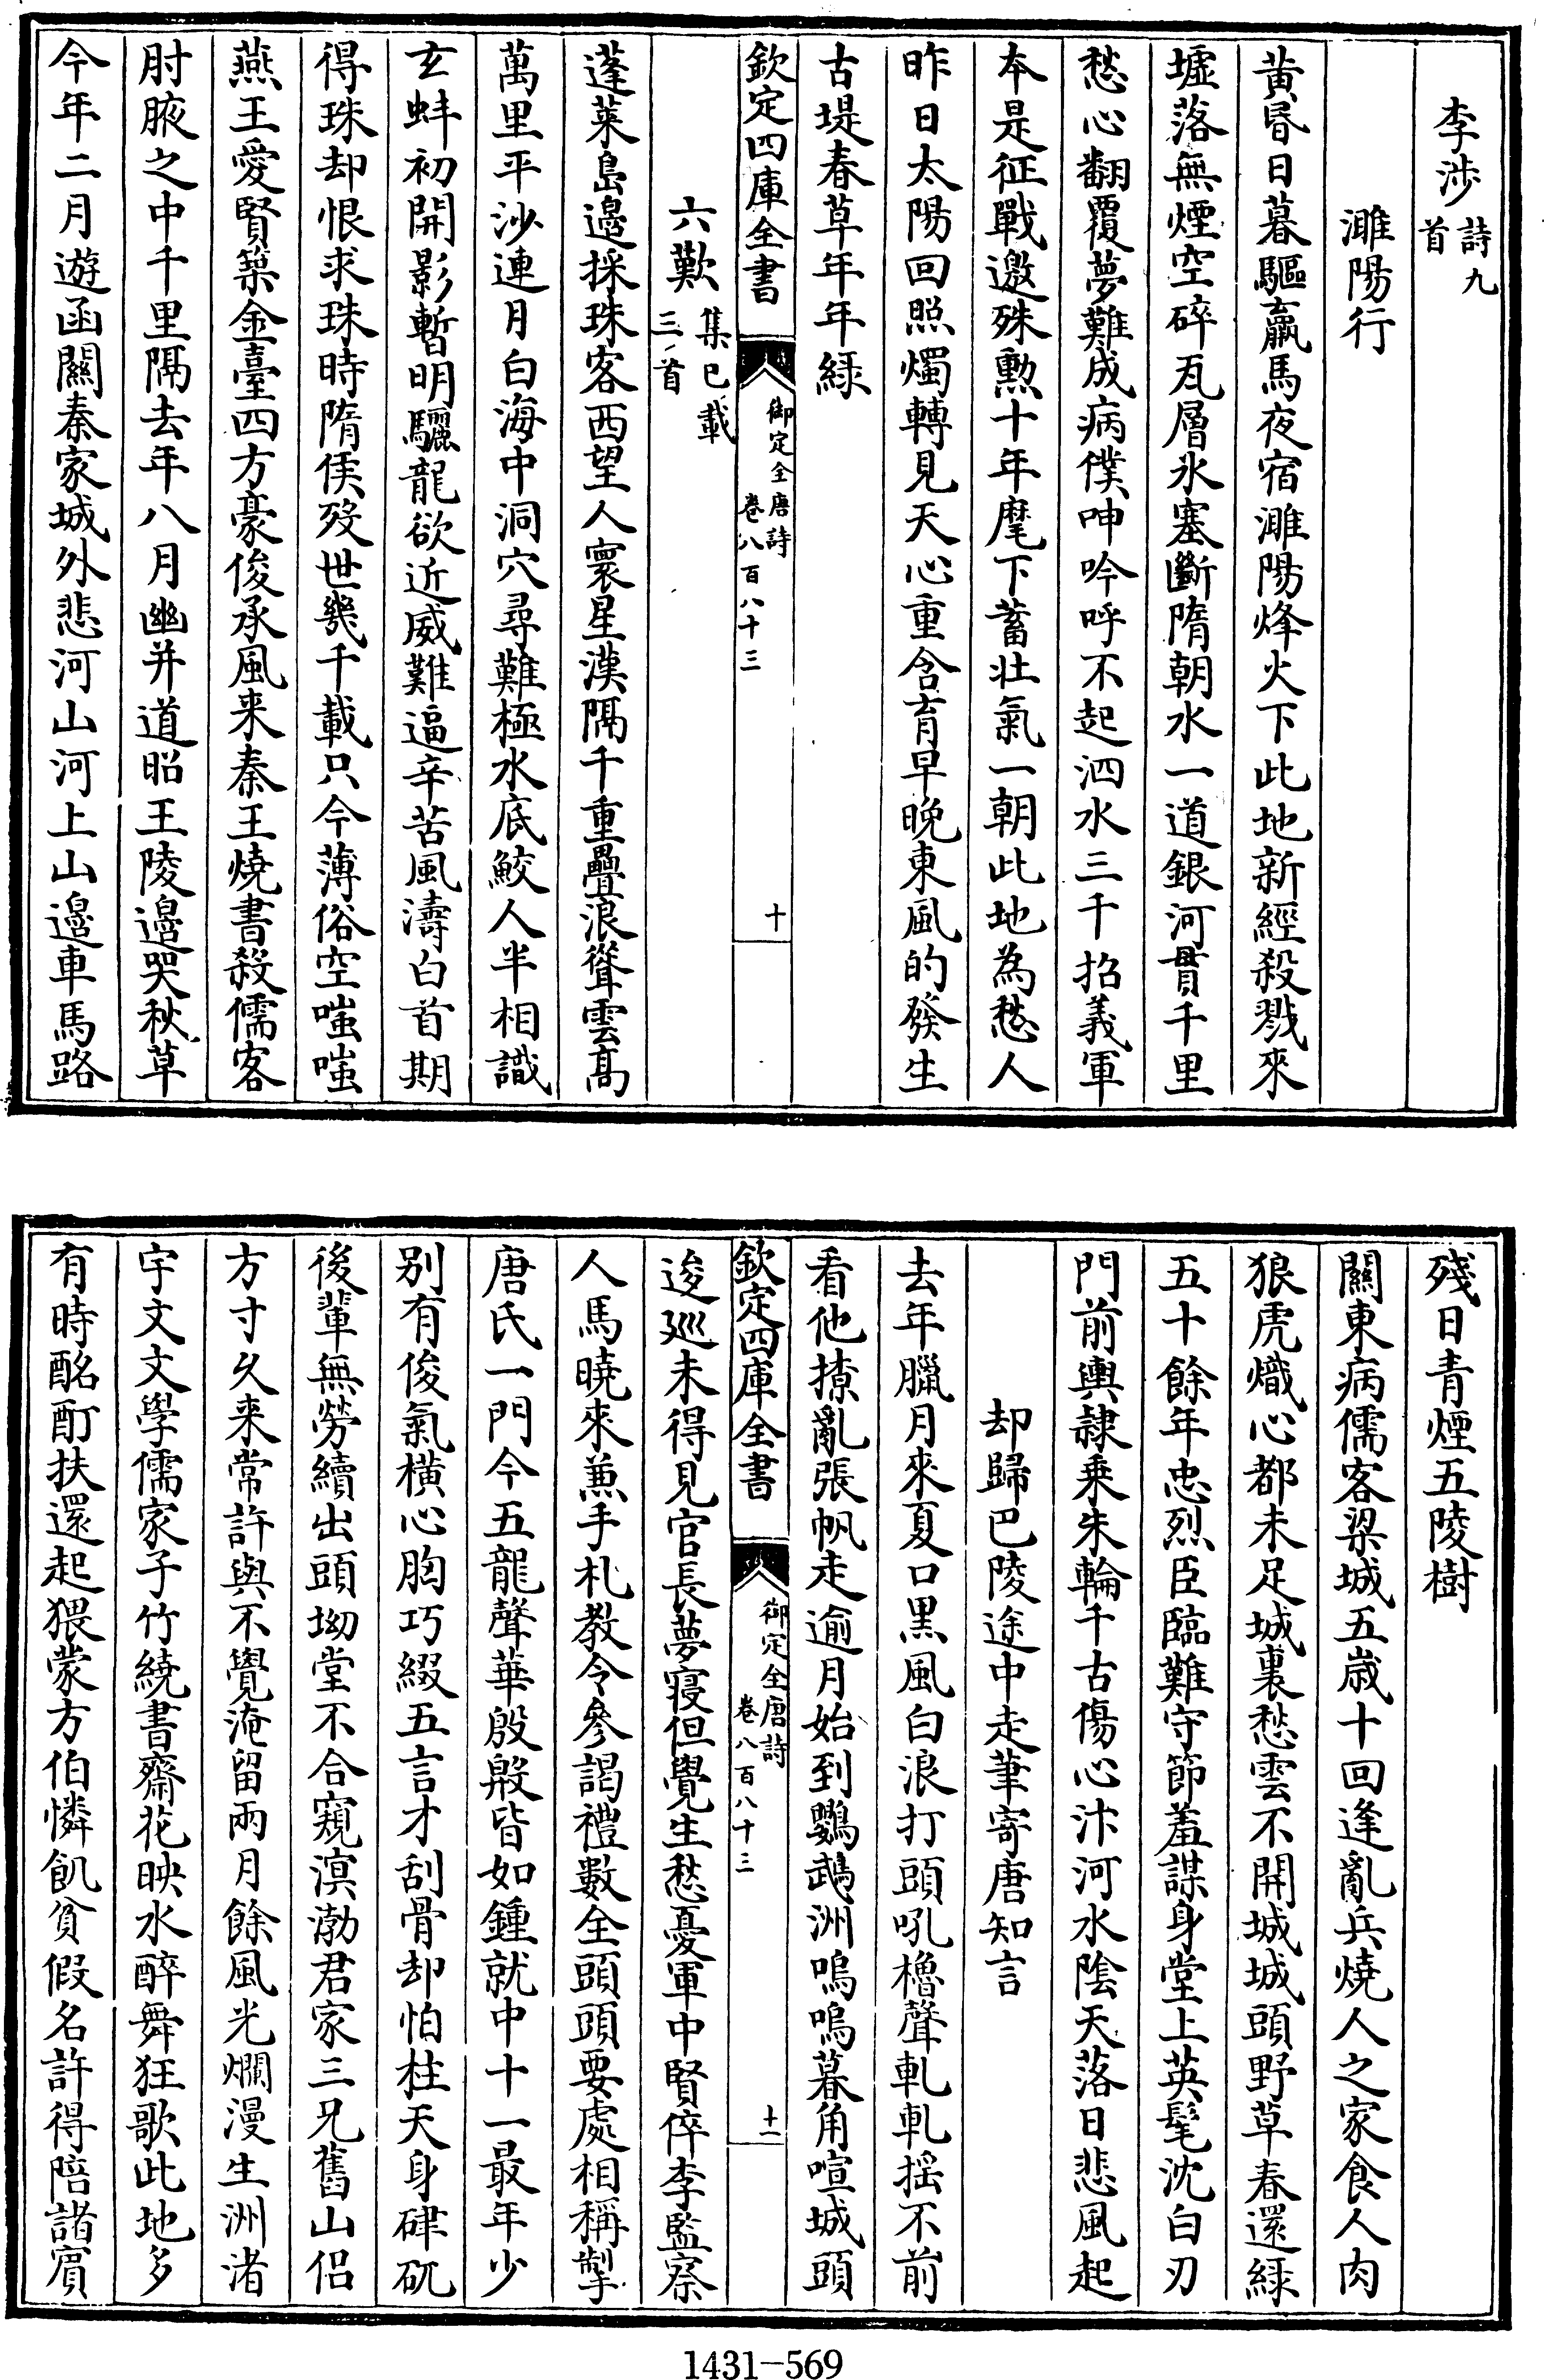 李涉詩九首
濉陽行
黃昏日暮驅羸馬夜宿濉陽烽火下此地新經殺戮來
墟落無煙空碎瓦層氷塞斷隋朝水一道銀河貫千里
愁心翻覆夢難成病僕呻吟呼不起泗水三千招義軍
本是征戰邀殊勲十年麾下蓄壮氣一朝此地為愁人
昨日太陽回照燭轉見天心重含育早晚東風的發生
古堤春草年年綠
欽定四庫全書
御定全唐詩
卷八百八十三
十
六歎集已載三首
蓬萊島邊採珠客西望人寰星漢隔千重疊浪聳雲高
萬里平沙連月白海中洞穴尋難極水底鮫人半相識
玄蚌初開影暫明驪龍欲近威難逼辛苦風濤白首期
得珠却恨求珠時隋侯歿世幾千載只今薄俗空嗤嗤
燕王愛賢築金臺四方豪俊承風来秦王燒書殺儒客
肘腋之中千里隔去年八月幽并道昭王陵邊哭秋草
今年二月遊函關秦家城外悲河山河上山邊車馬路
殘日青煙五陵樹
關東病儒客梁城五歲十回逢亂兵燒人之家食人肉
狼虎熾心都未足城裏愁雲不開城城頭野草春還綠
五十餘年忠烈臣臨難守節羞謀身堂上英髦沈白刃
門前輿隷乗朱輪千古傷心汴河水陰天落日悲風起
却歸巴陵途中走筆寄唐知言
去年臘月來夏口黑風白浪打頭吼櫓聲軋軋揺不前
看他撩亂張帆走逾月始到鸚鵡洲嗚嗚暮角喧城頭
欽定四庫全書
御定全唐詩
卷八百八十三
十一
逡廵未得見官長夢寝但覺生愁憂軍中賢倅李監察
人馬曉來兼手札教令參謁禮數全頭頭要處相稱掣
唐氏一門今五龍聲華殷殷皆如鍾就中十一最年少
別有俊氣橫心胸巧綴五言才刮骨却怕柱天身硉矹
後輩無勞續出頭坳堂不合窺溟渤君家三兄舊山侶
方寸久来常許與不覺淹留兩月餘風光爛漫生洲渚
宇文文學儒家子竹繞書齋花映水醉舞狂歌此地多
有時酩酊扶還起猥蒙方伯憐飢貧假名許得陪諸賓
1431-569